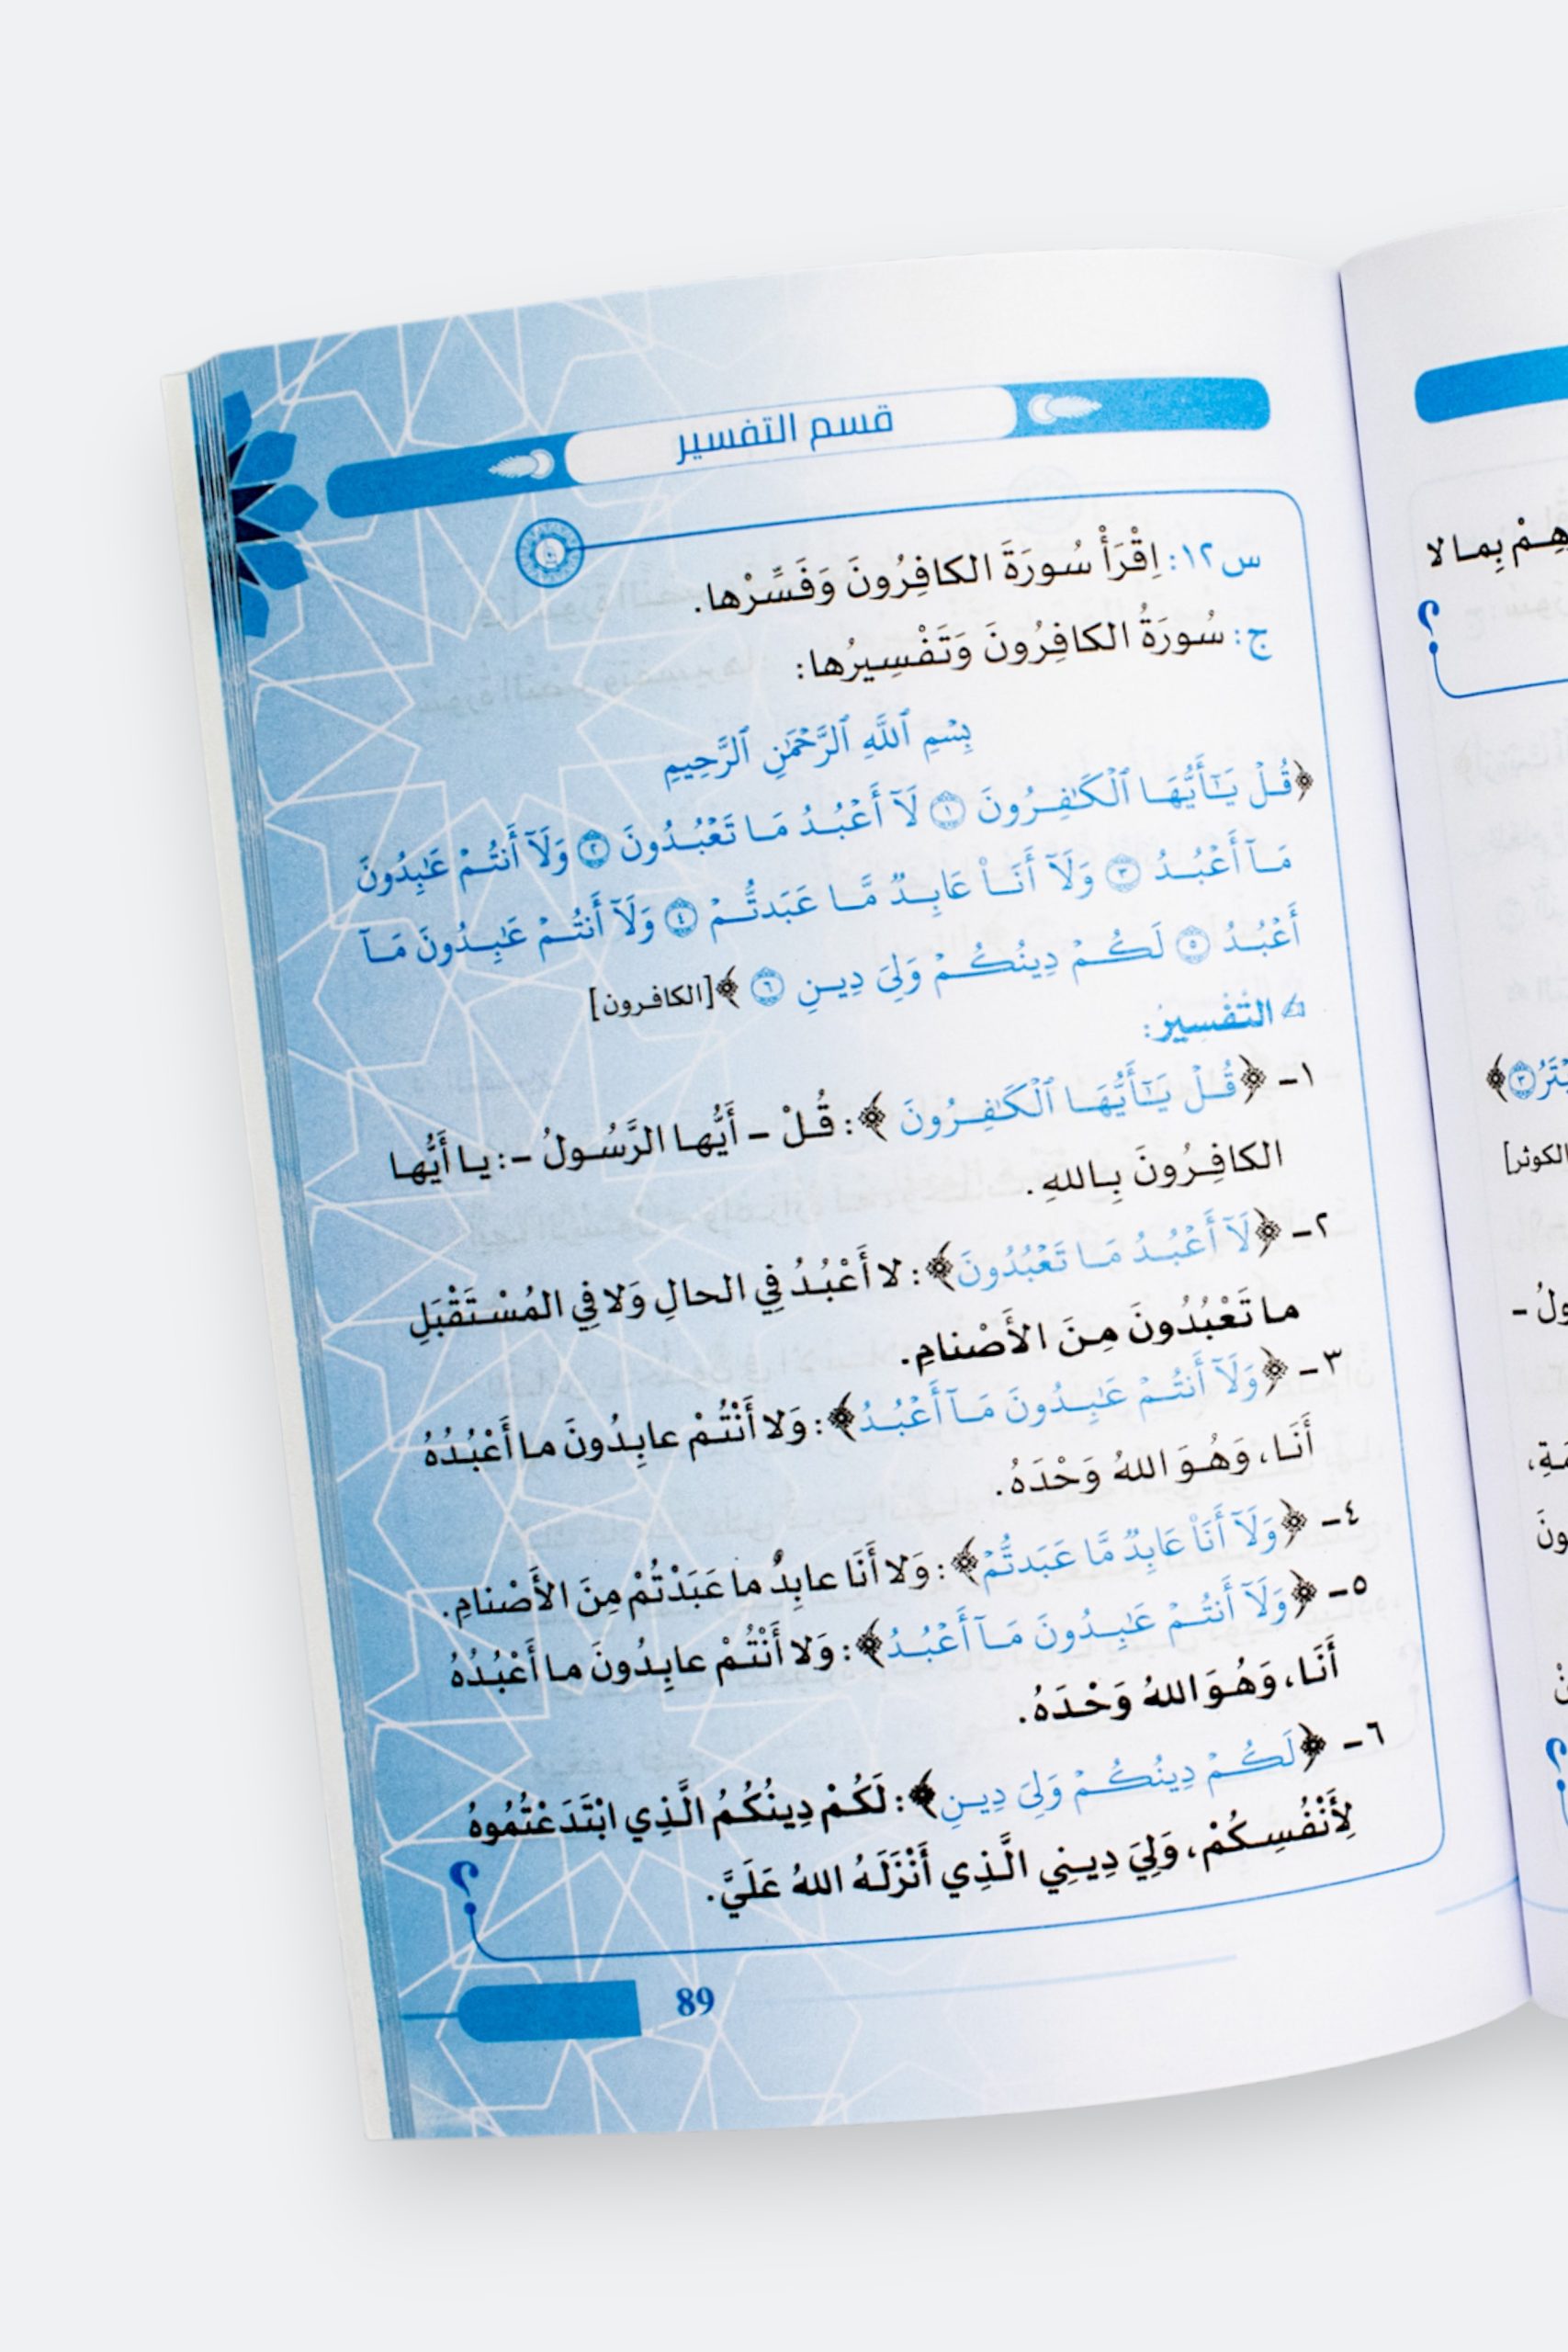 قسم التفسير
س١٢: اِقْرَأْ سُورَةَ الكافِرُونَ وَفَسِّرْها.
ج: سُورَةُ الكافِرُونَ وَتَفْسِيرُها:
بِسْمِ ٱللَّهِ ٱلرَّحْمَٰنِ ٱلرَّحِيمِ
﴿قُلْ يَٰٓأَيُّهَا ٱلْكَٰفِرُونَ ۝١ لَآ أَعْبُدُ مَا تَعْبُدُونَ ۝٢ وَلَآ أَنتُمْ عَٰبِدُونَ
مَآ أَعْبُدُ ۝٣ وَلَآ أَنَا۠ عَابِدٌ مَّا عَبَدتُّمْ ۝٤ وَلَآ أَنتُمْ عَٰبِدُونَ مَآ
أَعْبُدُ ۝٥ لَكُمْ دِينُكُمْ وَلِيَ دِينِ ۝٦﴾ [الكافرون]
التَّفْسِيرُ:
١- ﴿قُلْ يَٰٓأَيُّهَا ٱلْكَٰفِرُونَ﴾: قُلْ - أَيُّها الرَّسُولُ -: يا أَيُّها
الكافِرُونَ بِاللهِ.
٢- ﴿لَآ أَعْبُدُ مَا تَعْبُدُونَ﴾: لا أَعْبُدُ فِي الحالِ وَلا فِي المُسْتَقْبَلِ
ما تَعْبُدُونَ مِنَ الأَصْنامِ.
٣- ﴿وَلَآ أَنتُمْ عَٰبِدُونَ مَآ أَعْبُدُ﴾: وَلا أَنْتُمْ عابِدُونَ ما أَعْبُدُهُ
أَنَا، وَهُوَ اللهُ وَحْدَهُ.
٤- ﴿وَلَآ أَنَا۠ عَابِدٌ مَّا عَبَدتُّمْ﴾: وَلا أَنَا عابِدٌ ما عَبَدْتُمْ مِنَ الأَصْنامِ.
٥- ﴿وَلَآ أَنتُمْ عَٰبِدُونَ مَآ أَعْبُدُ﴾: وَلا أَنْتُمْ عابِدُونَ ما أَعْبُدُهُ
أَنَا، وَهُوَ اللهُ وَحْدَهُ.
٦- ﴿لَكُمْ دِينُكُمْ وَلِيَ دِينِ﴾: لَكُمْ دِينُكُمُ الَّذِي ابْتَدَعْتُمُوهُ
لِأَنْفُسِكُمْ، وَلِيَ دِينِي الَّذِي أَنْزَلَهُ اللهُ عَلَيَّ.
؟
89
بِما لا
؟
۝٣﴾
الكوثر]